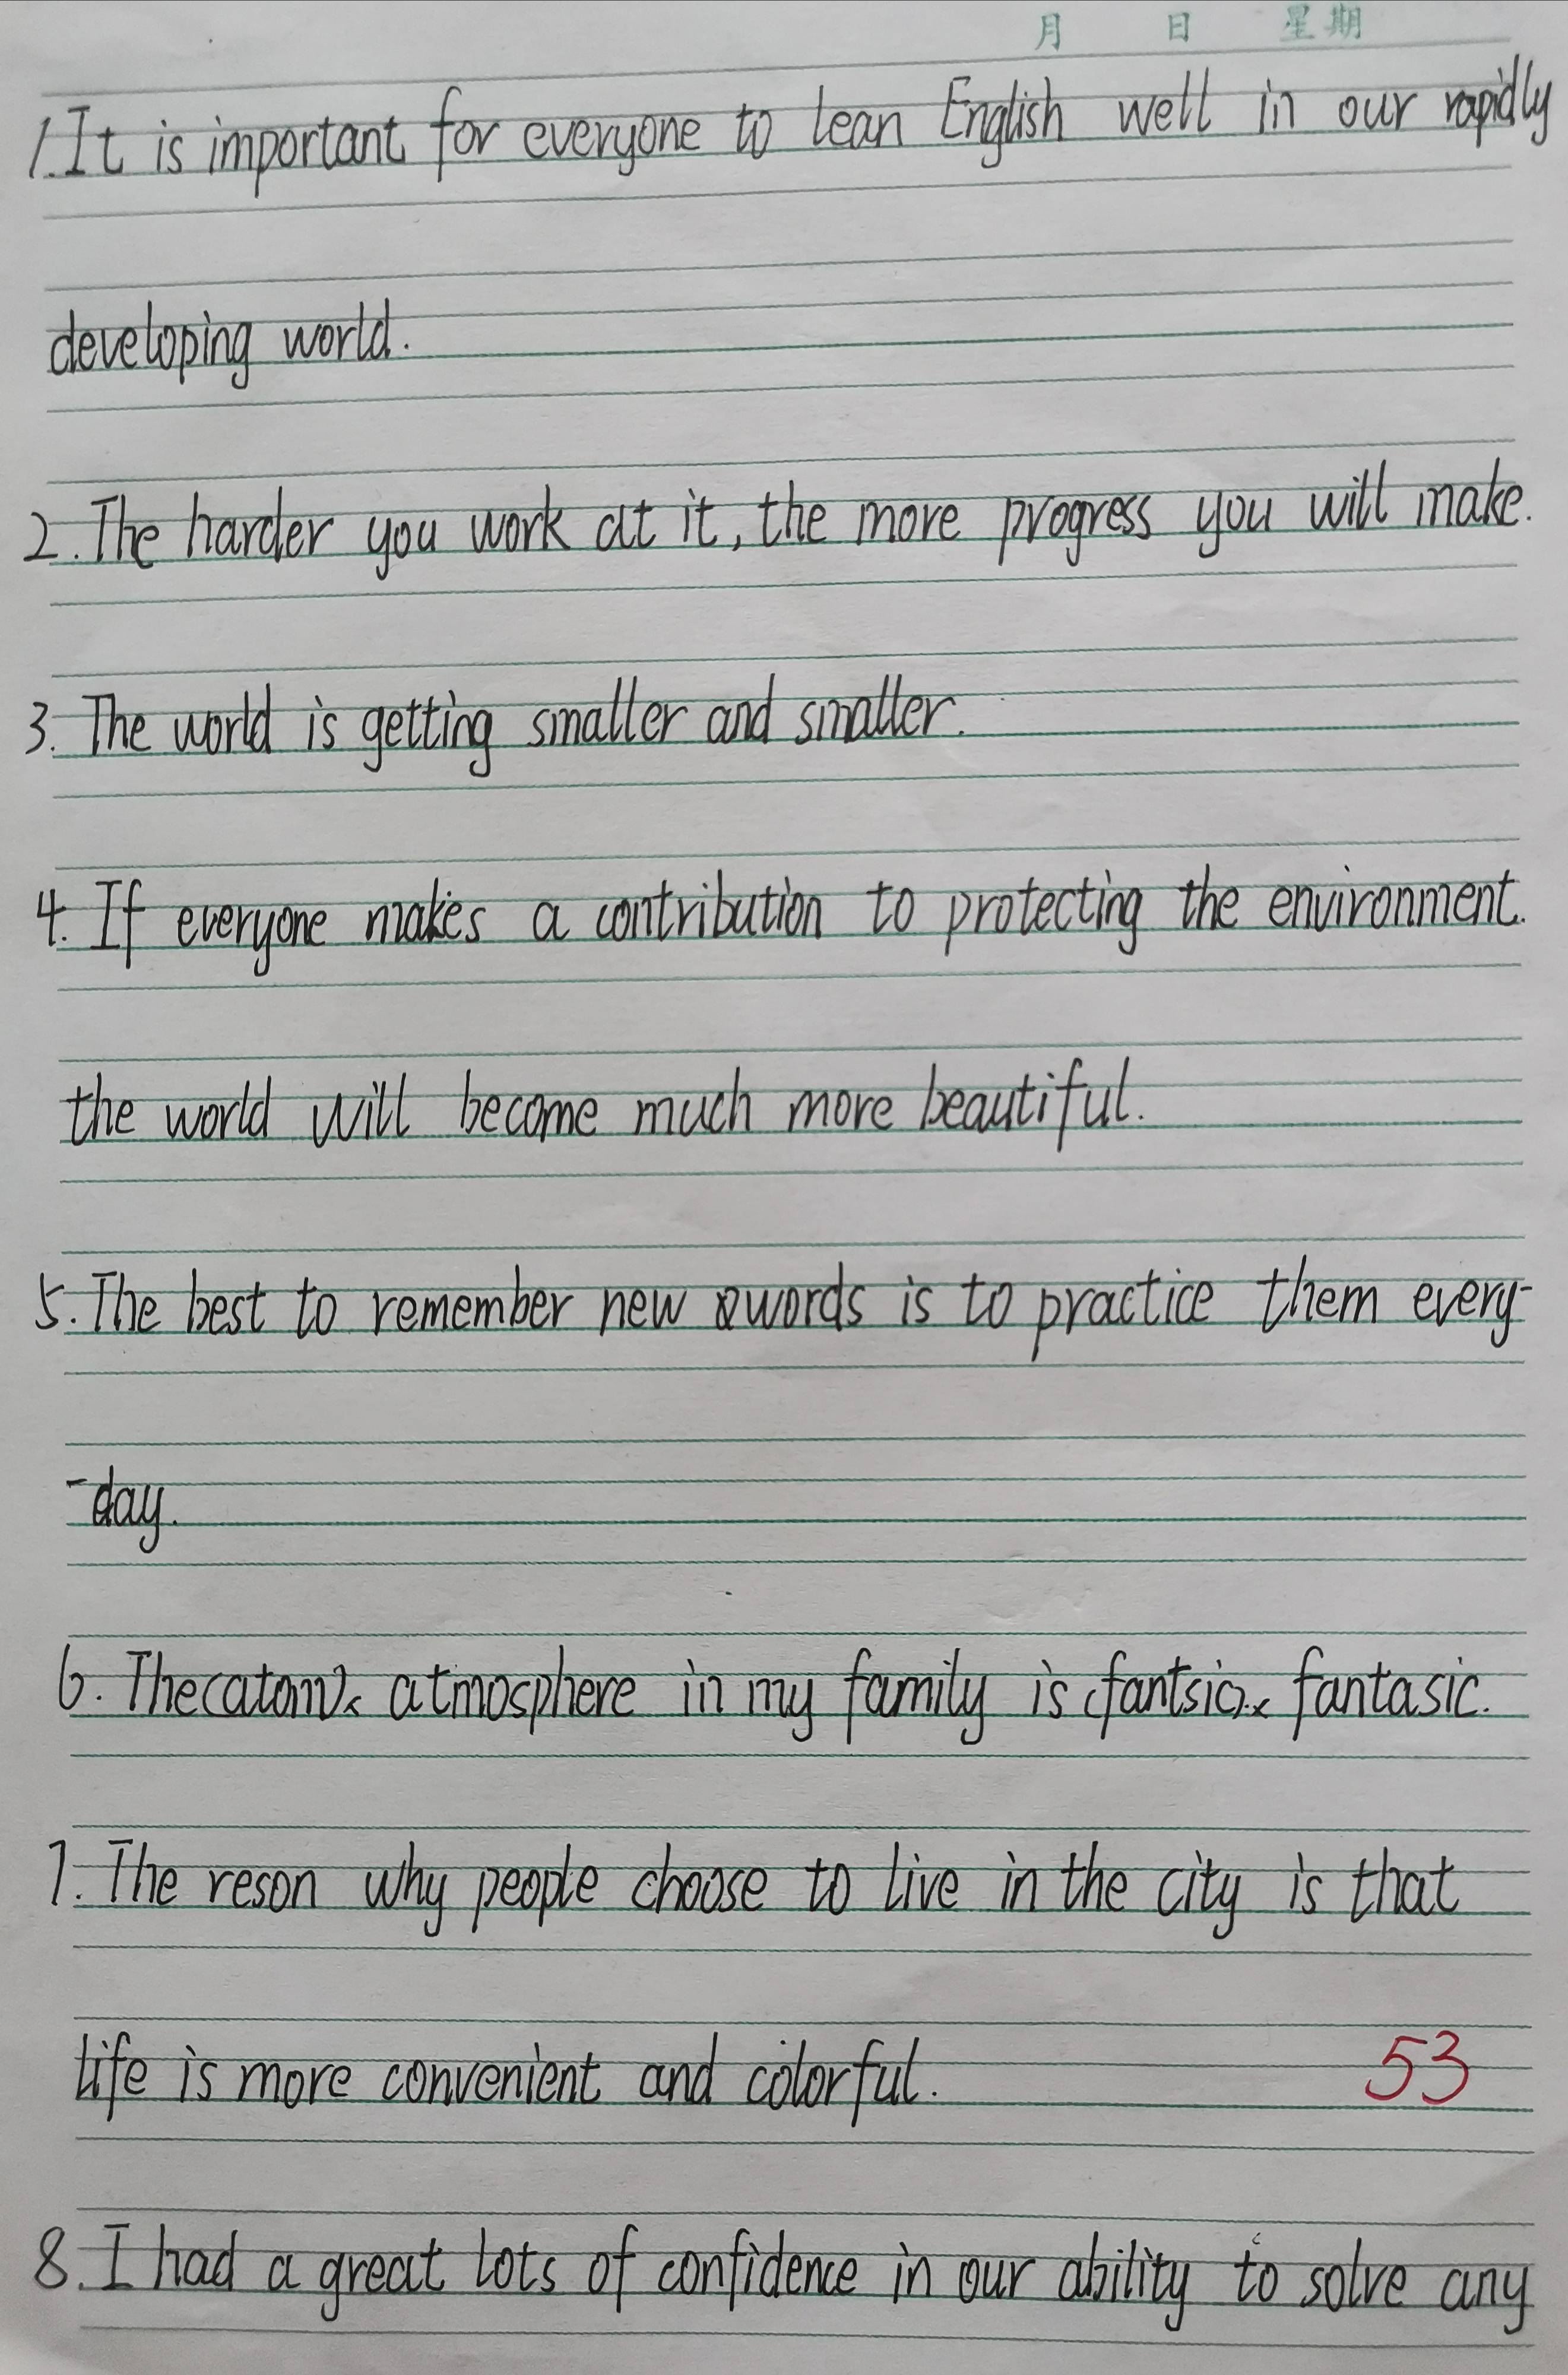 月 日 星期
1. It is important for everyone to lean English well in our rapidly
developing world.
2. The harder you work at it, the more progress you will make.
3. The world is getting smaller and smaller.
4. If everyone makes a contribution to protecting the environment.
the world will become much more beautiful.
5. The best to remember new words is to practice them every-
-day.
6. The (atom)x atmosphere in my family is (fantsic).x fantasic.
7. The reson why people choose to live in the city is that
life is more convenient and colorful.
53
8. I had a great lots of confidence in our ability to solve any